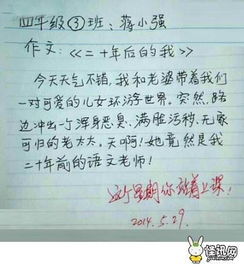 四年级③班:蒋小强
作文:<<二十年后的我>>
今天天气不错,我和老婆带着我们
一对可爱的儿女环游世界。突然,路
边冲出一个浑身恶臭、满脏污秽、无家
可归的老太太。天啊!她竟然是我
二十年前的语文老师!
这个星期你站着上课!
2014.5.29.
怪讯网